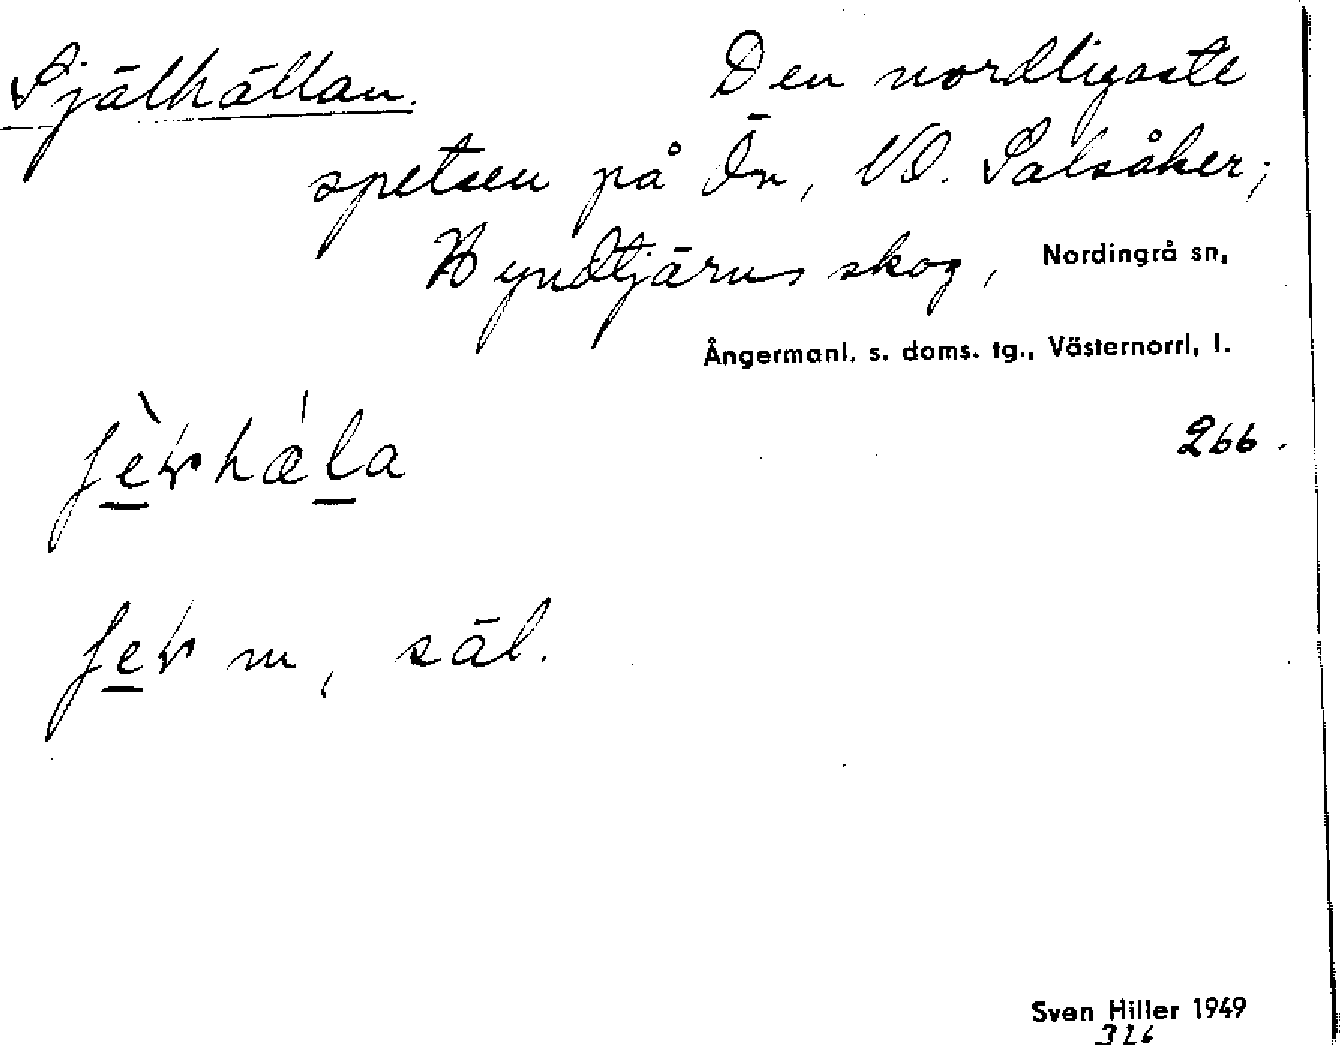 Själhällan. Den nordligaste
spetsen på Ön, VO. Salsåker;
Hyndtjärns skog, Nordingrå sn,
Ångermanl. s. doms. tg., Västernorrl. l.
266.
m, säl.
Sven Hiller 1949
326